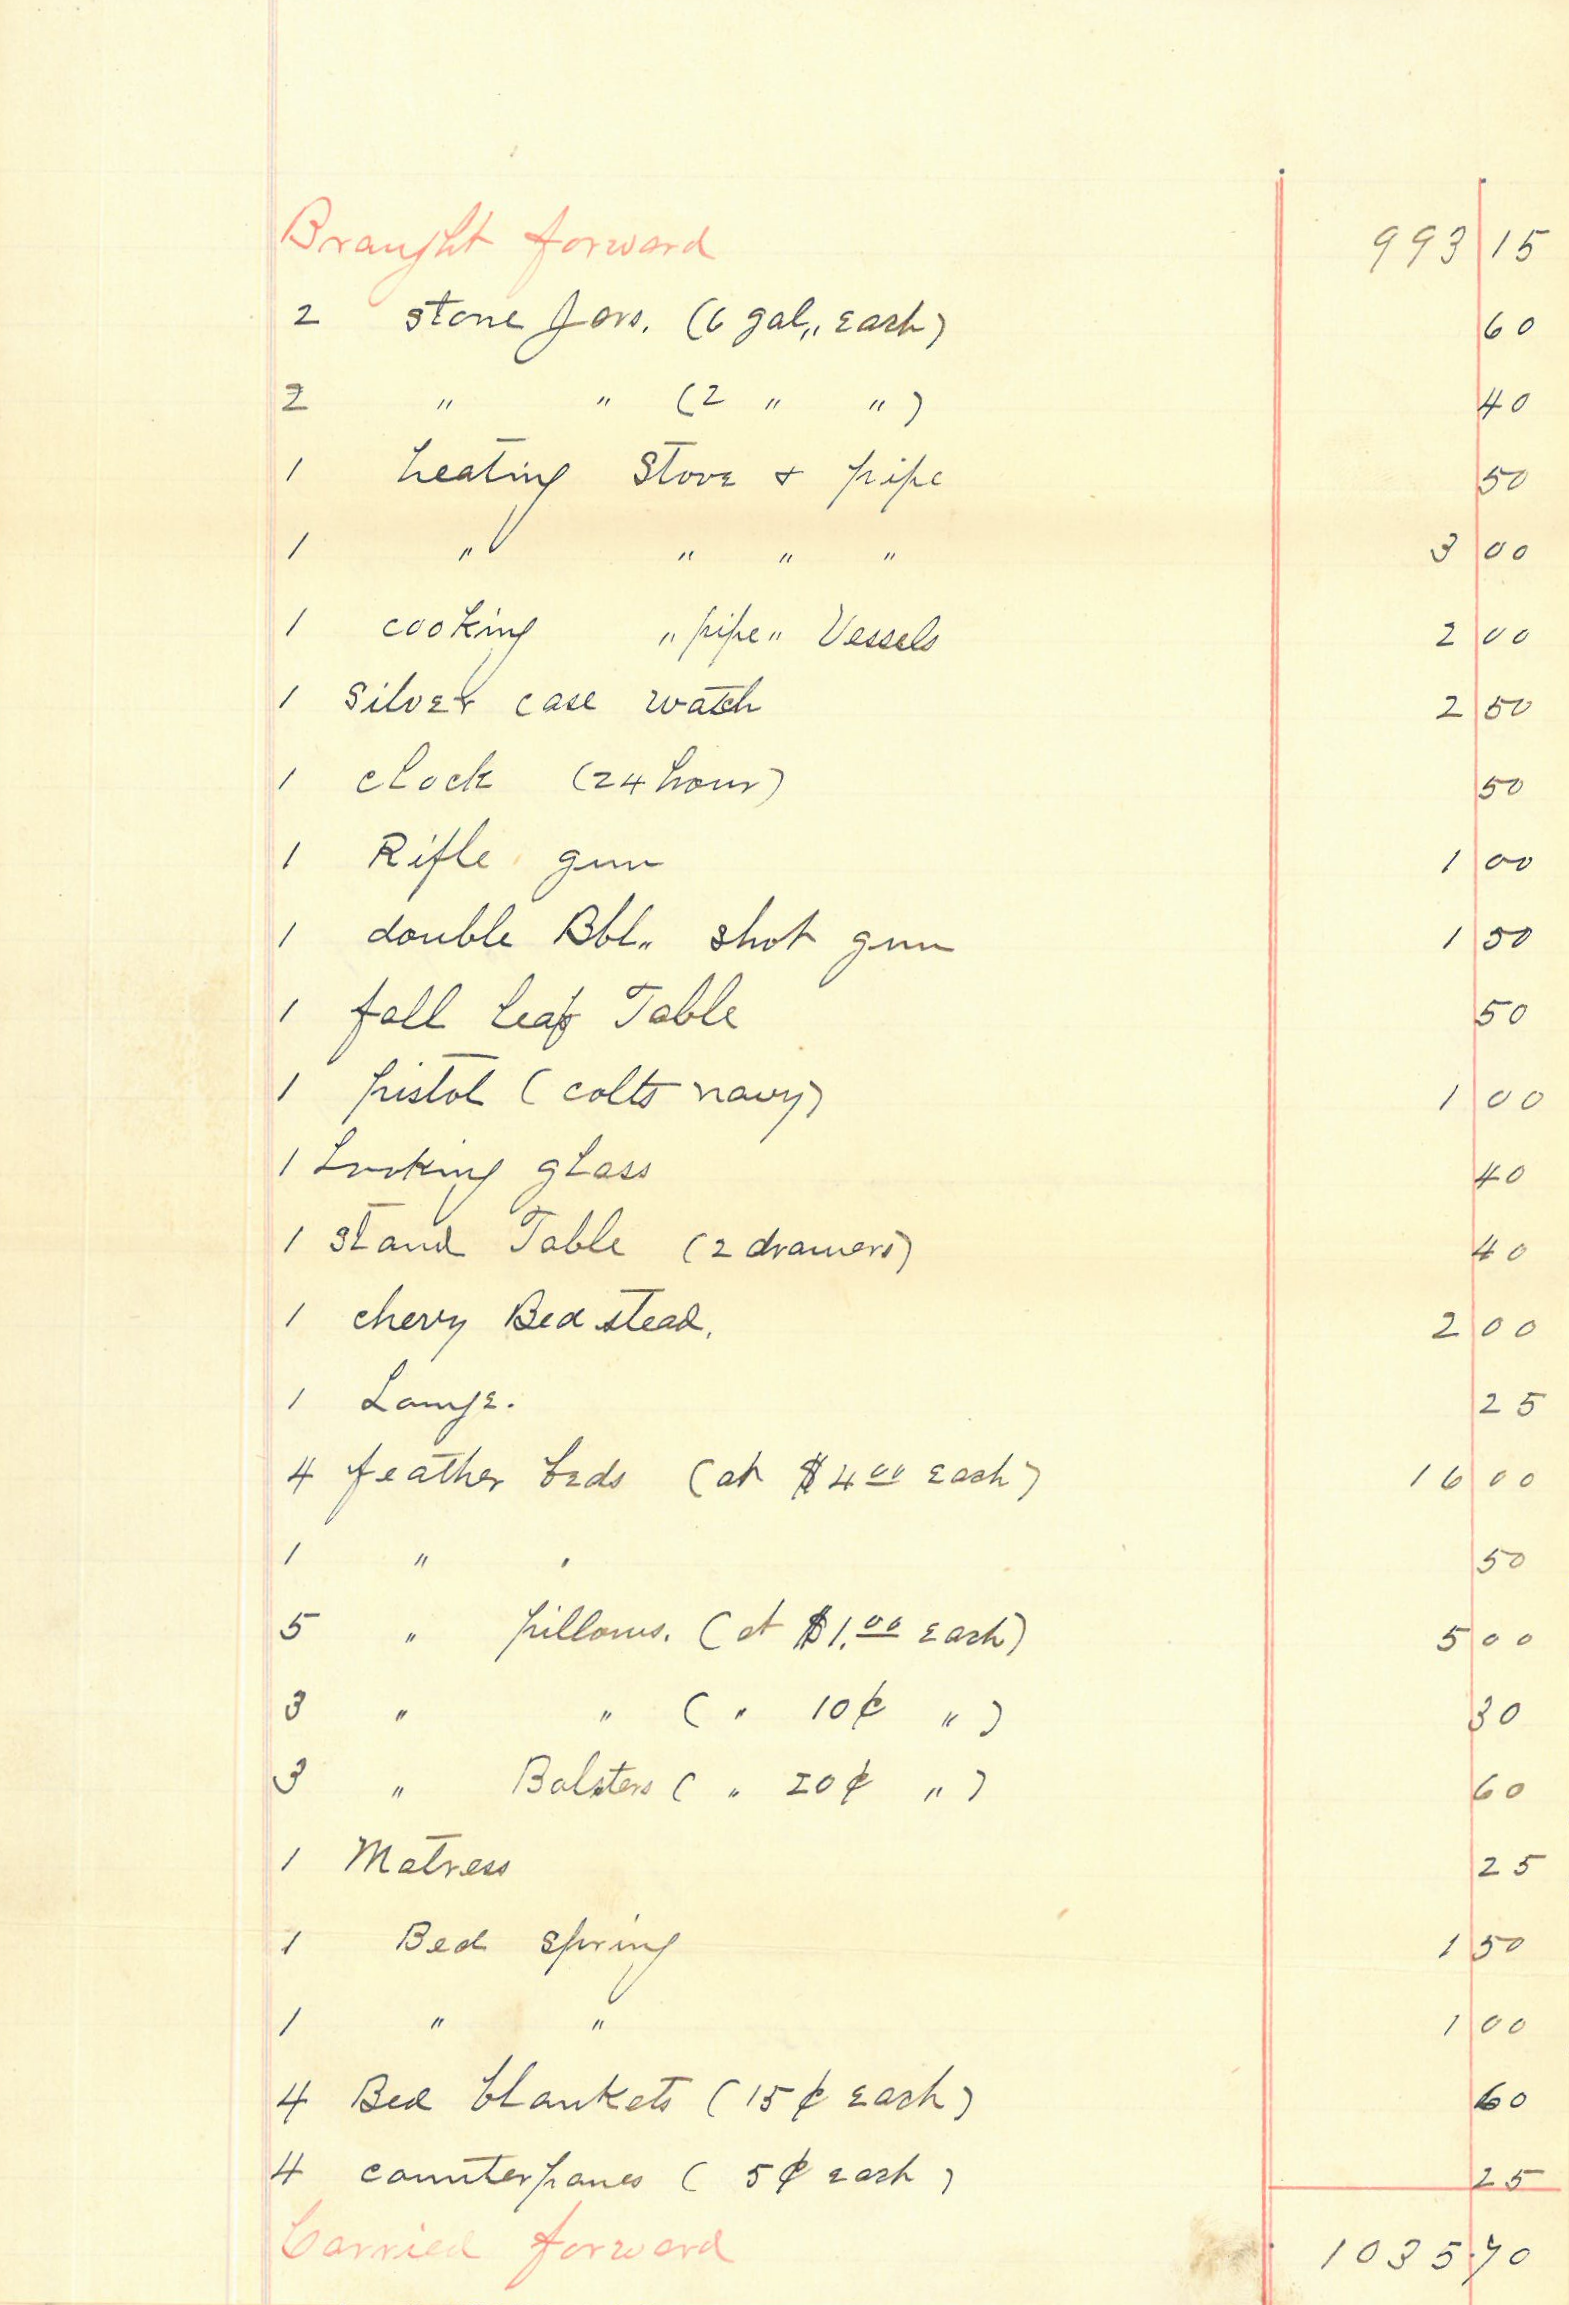 Braught forward 993 15
2 stone Jars. (6 gal,, Each) 60
2 " " (2 " ") 40
1 heating Stove & pipe 50
1 " " " " 3 00
1 cooking " pipe " Vessels 2 00
1 Silver case watch 2 50
1 clock (24 hour) 50
1 Rifle gun 1 00
1 double Bbl,, shot gun 1 50
1 fall leaf Table 50
1 pistol (colts navy) 1 00
1 Looking glass 40
1 Stand Table (2 drawers) 40
1 cherry Bed stead. 2 00
1 25
4 feather beds (at $4 00 Each) 16 00
1 " " 50
5 " pillows. (at $1.00 Each) 5 00
3 " " ( " 10¢ " ) 30
3 " Bolsters ( " 20¢ " ) 60
1 Matress 25
1 Bed spring 1 50
1 " " 1 00
4 Bed blankets (15¢ Each) 60
4 counterpanes ( 5¢ Each ) 25
Carried forward 1035.70